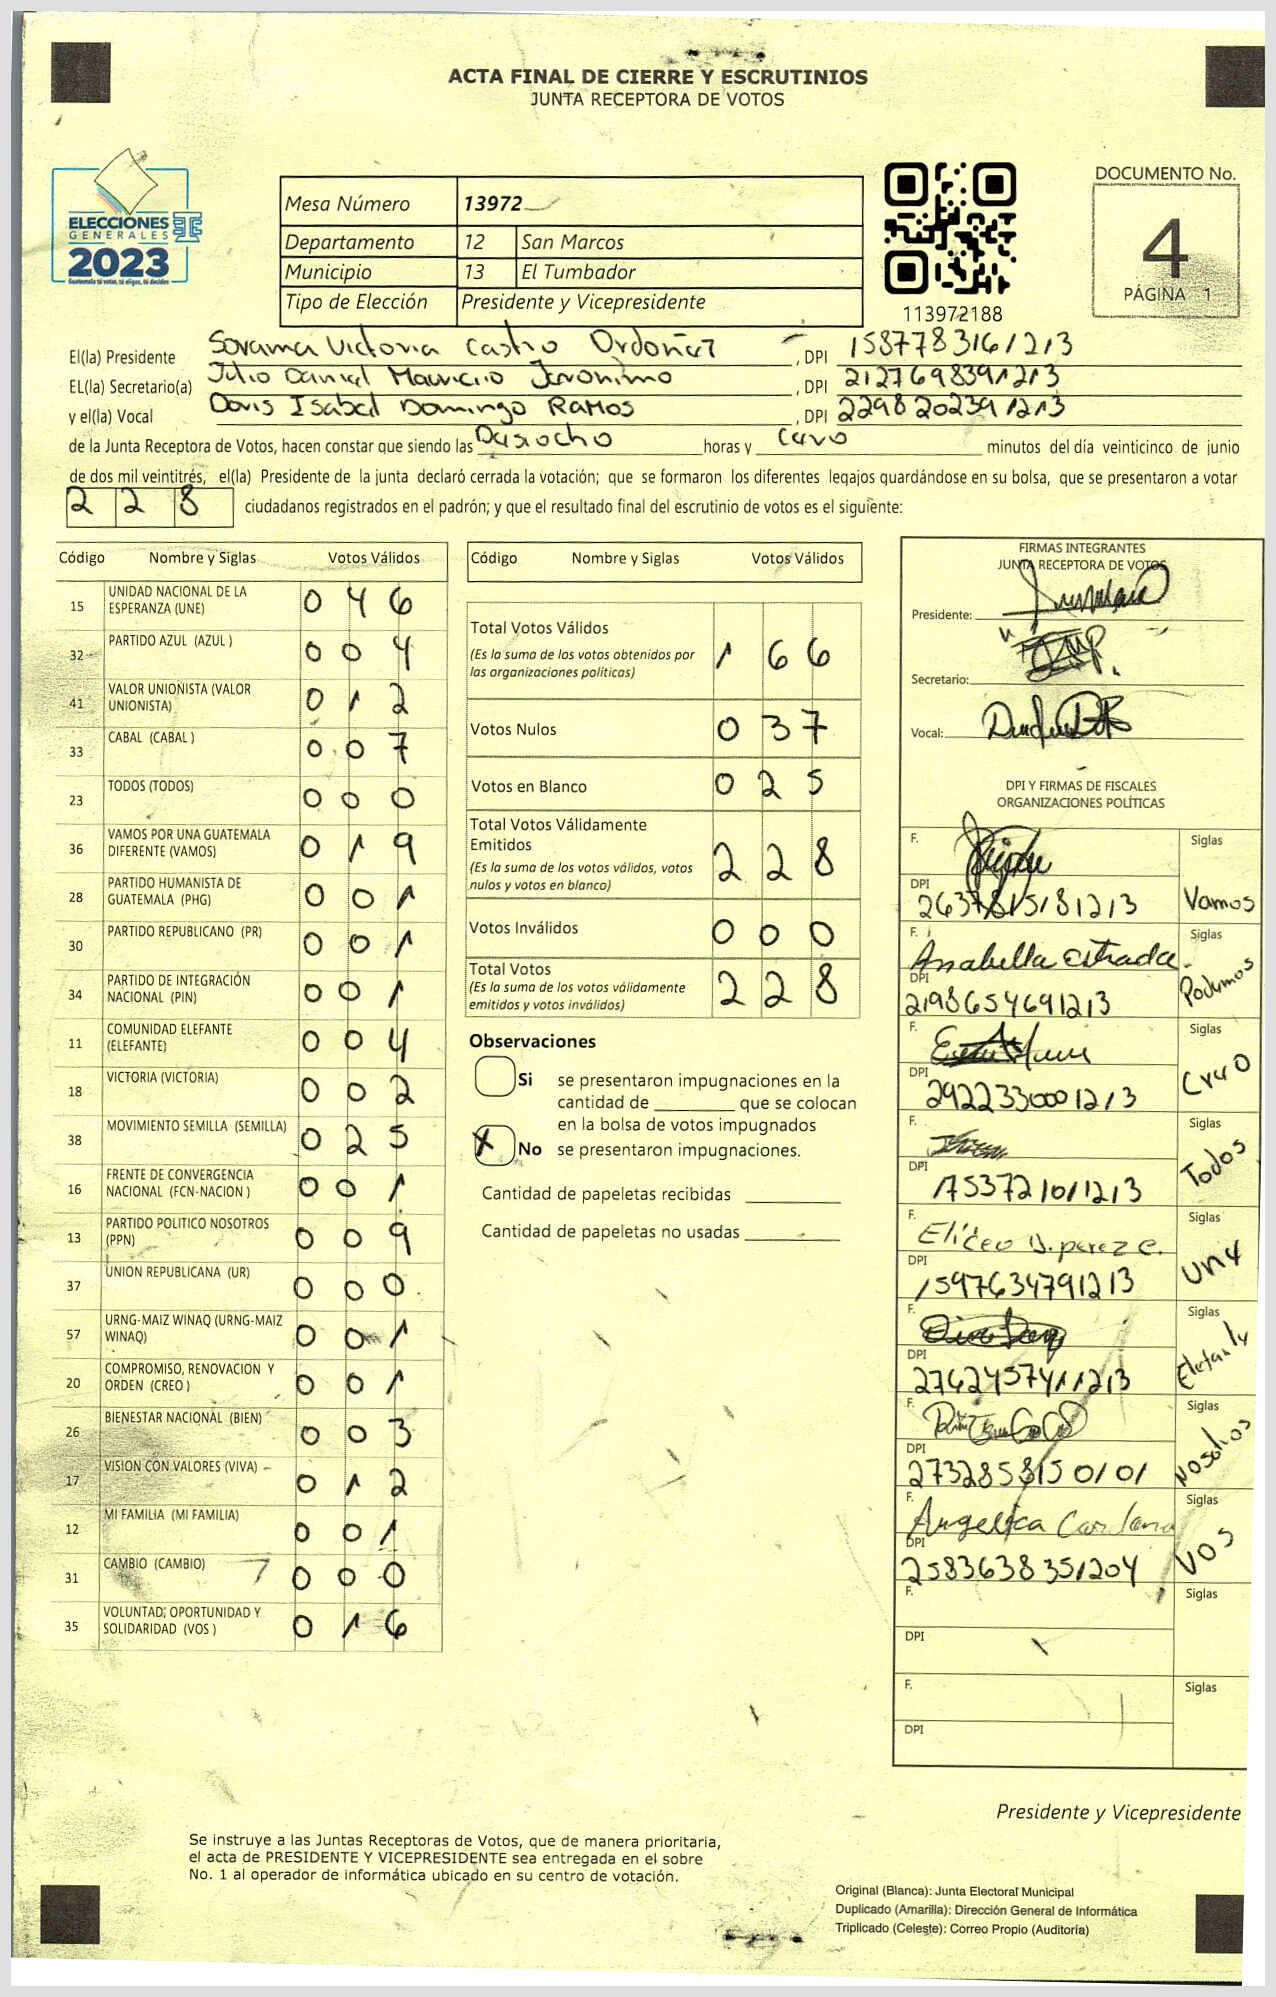 ACTA FINAL DE CIERRE Y ESCRUTINIOS
JUNTA RECEPTORA DE VOTOS
ELECCIONES
GENERALES
2023
Guatemala tú votas, tú eliges, tú decides
Mesa Número 13972
Departamento 12 San Marcos
Municipio 13 El Tumbador
Tipo de Elección Presidente y Vicepresidente
113972188
DOCUMENTO No.
4
PÁGINA 1
El(la) Presidente Sorama Victoria Castro Ordoñez , DPI 1587783161213
EL(la) Secretario(a) Julio Daniel Mauricio Jeronimo , DPI 2127698391213
y el(la) Vocal Doris Isabel Domingo Ramos , DPI 2298202391213
de la Junta Receptora de Votos, hacen constar que siendo las Dasiocho horas y Cero minutos del día veinticinco de junio
de dos mil veintitrés, el(la) Presidente de la junta declaró cerrada la votación; que se formaron los diferentes legajos quardándose en su bolsa, que se presentaron a votar
228 ciudadanos registrados en el padrón; y que el resultado final del escrutinio de votos es el siguiente:
Código Nombre y Siglas Votos Válidos
15 UNIDAD NACIONAL DE LA ESPERANZA (UNE) 046
32 PARTIDO AZUL (AZUL ) 004
41 VALOR UNIONISTA (VALOR UNIONISTA) 012
33 CABAL (CABAL ) 007
23 TODOS (TODOS) 000
36 VAMOS POR UNA GUATEMALA DIFERENTE (VAMOS) 019
28 PARTIDO HUMANISTA DE GUATEMALA (PHG) 001
30 PARTIDO REPUBLICANO (PR) 001
34 PARTIDO DE INTEGRACIÓN NACIONAL (PIN) 001
11 COMUNIDAD ELEFANTE (ELEFANTE) 004
18 VICTORIA (VICTORIA) 002
38 MOVIMIENTO SEMILLA (SEMILLA) 025
16 FRENTE DE CONVERGENCIA NACIONAL (FCN-NACION ) 001
13 PARTIDO POLITICO NOSOTROS (PPN) 009
37 UNION REPUBLICANA (UR) 000
57 URNG-MAIZ WINAQ (URNG-MAIZ WINAQ) 001
20 COMPROMISO, RENOVACION Y ORDEN (CREO ) 001
26 BIENESTAR NACIONAL (BIEN) 003
17 VISION CON VALORES (VIVA) 012
12 MI FAMILIA (MI FAMILIA) 001
31 CAMBIO (CAMBIO) 000
35 VOLUNTAD, OPORTUNIDAD Y SOLIDARIDAD (VOS ) 016
Código Nombre y Siglas Votos Válidos
Total Votos Válidos 166
(Es la suma de los votos obtenidos por
las organizaciones politicas)
Votos Nulos 037
Votos en Blanco 025
Total Votos Válidamente
Emitidos 228
(Es la suma de los votos válidos, votos
nulos y votos en blanco)
Votos Inválidos 000
Total Votos 228
(Es la suma de los votos válidamente
emitidos y votos inválidos)
Observaciones
Si se presentaron impugnaciones en la
cantidad de ________ que se colocan
en la bolsa de votos impugnados
X No se presentaron impugnaciones.
Cantidad de papeletas recibidas ________
Cantidad de papeletas no usadas ________
FIRMAS INTEGRANTES
JUNTA RECEPTORA DE VOTOS
Presidente:
Secretario:
Vocal:
DPI Y FIRMAS DE FISCALES
ORGANIZACIONES POLÍTICAS
F. Siglas
DPI Vamos
F. Anabella estrada Siglas
DPI 2198654691213 Podemos
F. Siglas
DPI 2922330001213 Creo
F. Siglas
DPI 1753721011213 Todos
F. Eliceo D. perez c. Siglas
DPI 1597634791213 une
F. Siglas
DPI 2762457411213 Elefante
F. Siglas
DPI 2732858150101 Nosotros
F. Angelica Siglas
DPI 2583638351204 VOS
F. Siglas
DPI
F. Siglas
DPI
Presidente y Vicepresidente
Se instruye a las Juntas Receptoras de Votos, que de manera prioritaria,
el acta de PRESIDENTE Y VICEPRESIDENTE sea entregada en el sobre
No. 1 al operador de informática ubicado en su centro de votación.
Original (Blanca): Junta Electoral Municipal
Duplicado (Amarilla): Dirección General de Informática
Triplicado (Celeste): Correo Propio (Auditoría)